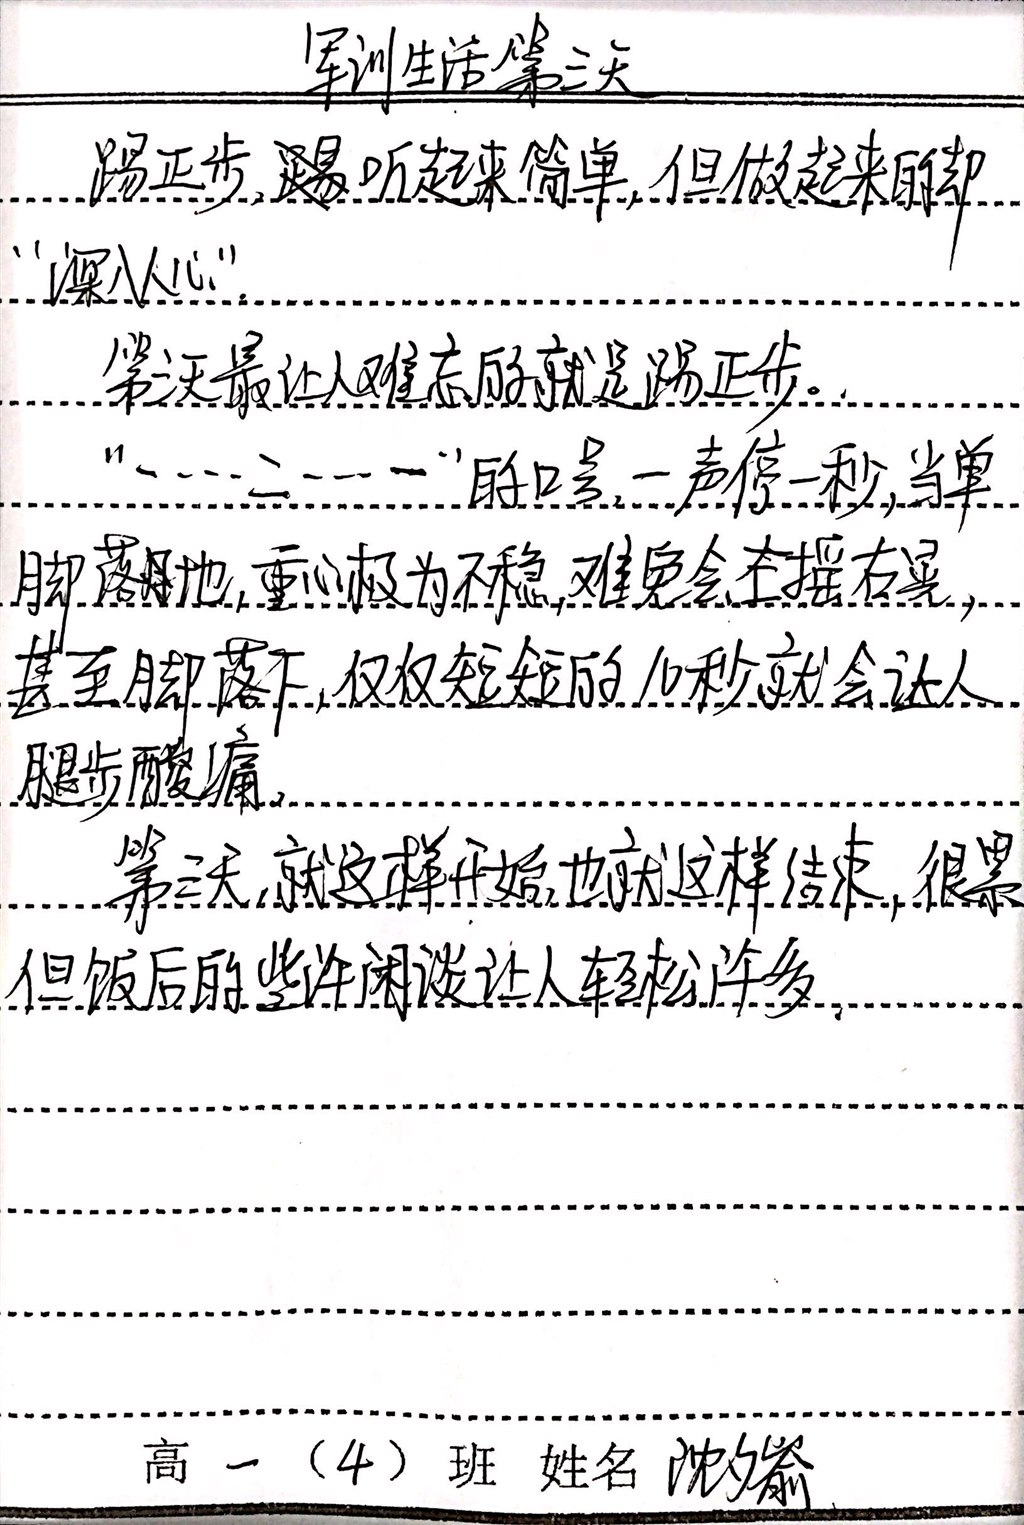 军训生活第三天
踢正步,听起来简单,但做起来的却
“深入人心”.
第三天最让人难忘的就是踢正步。
“一----二----一”的口号,一声停一秒,当单
脚落地,重心极为不稳,难免会左摇右晃,
甚至脚落下,仅仅短短的10秒就会让人
腿步酸痛,
第三天,就这样开始,也就这样结束,很累
但饭后的些许闲谈让人轻松许多.
高一(4)班 姓名 沈